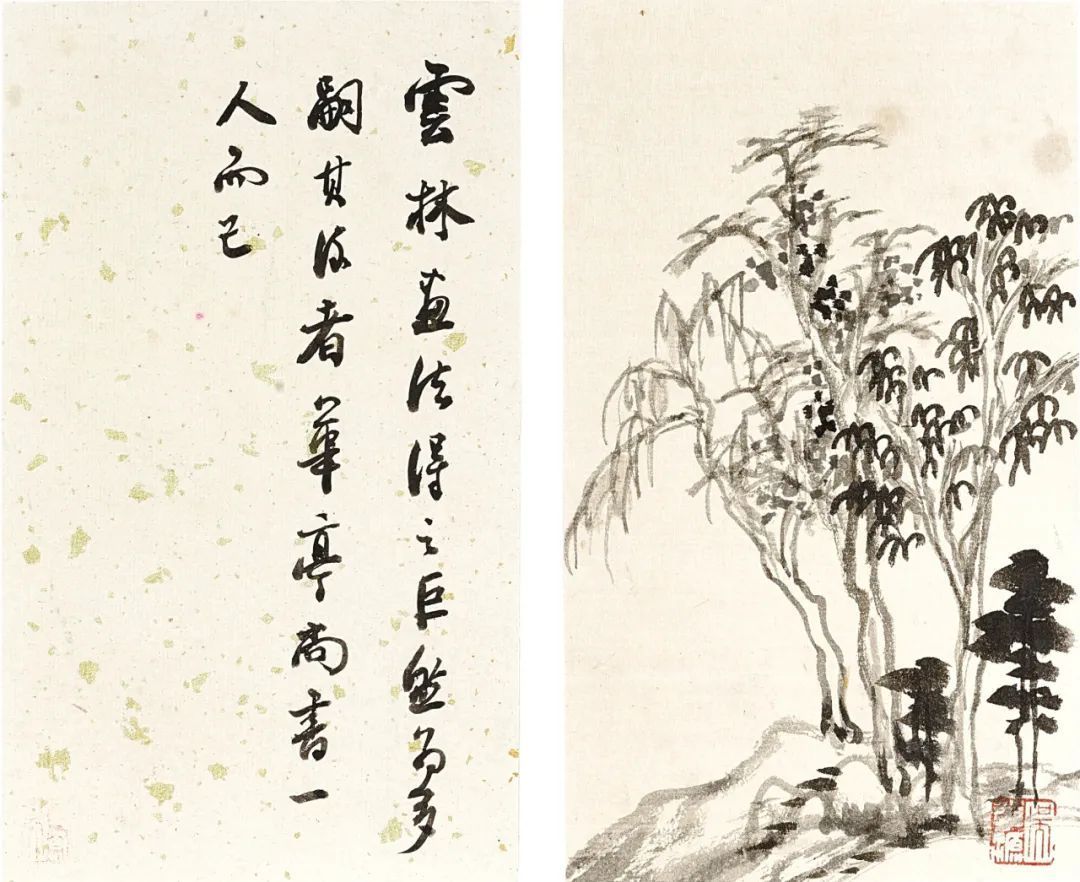 雲林畫法得之巨然為多
嗣其后者華亭尚書一
人而已